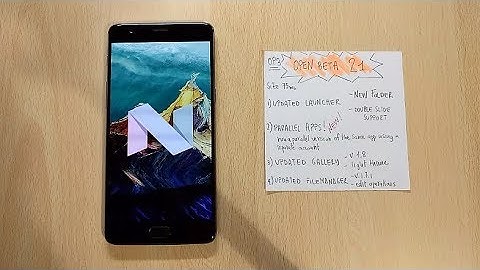 OP3 OPEN BETA 21
SIZE 75MB
1) UPDATED LAUNCHER - NEW FOLDER
- DOUBLE SLIDE SUPPORT
2) PARALLEL APPS! NEW!
run a parallel version of the same app using a
separate account
3) UPDATED GALLERY - V 1.8
- light theme
4) UPDATED FILEMANAGER - V 1.7.1
- edit operations
N